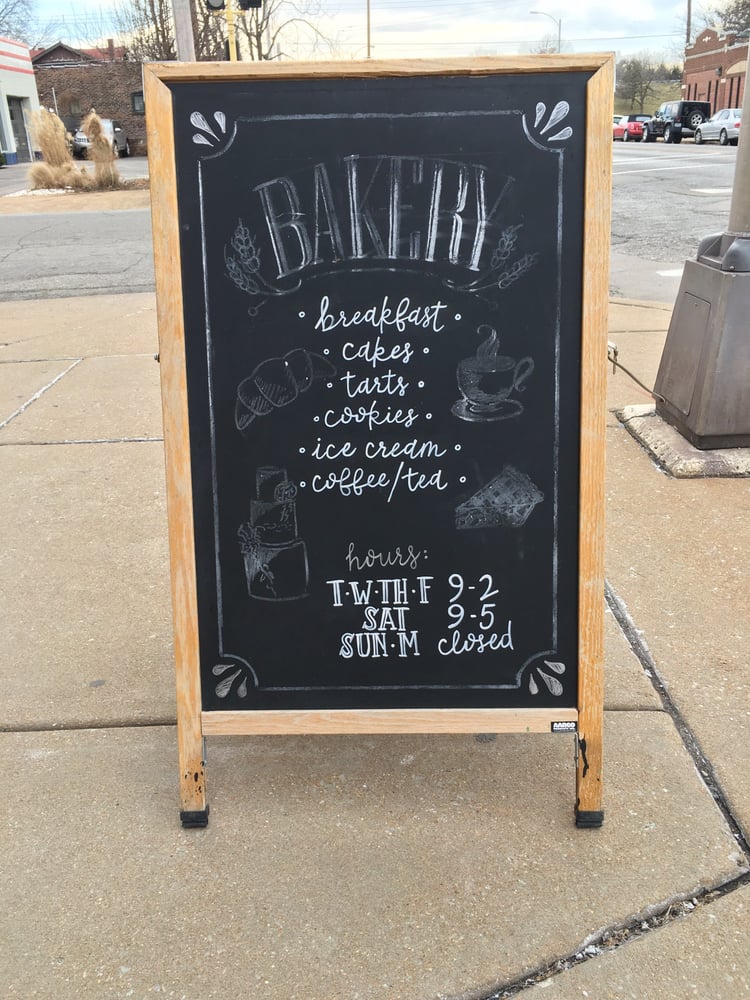 BAKERY
• breakfast •
• cakes •
• tarts •
• cookies •
• ice cream •
• coffee/tea •
hours:
T•W•TH•F 9-2
SAT 9-5
SUN•M closed
AARCO